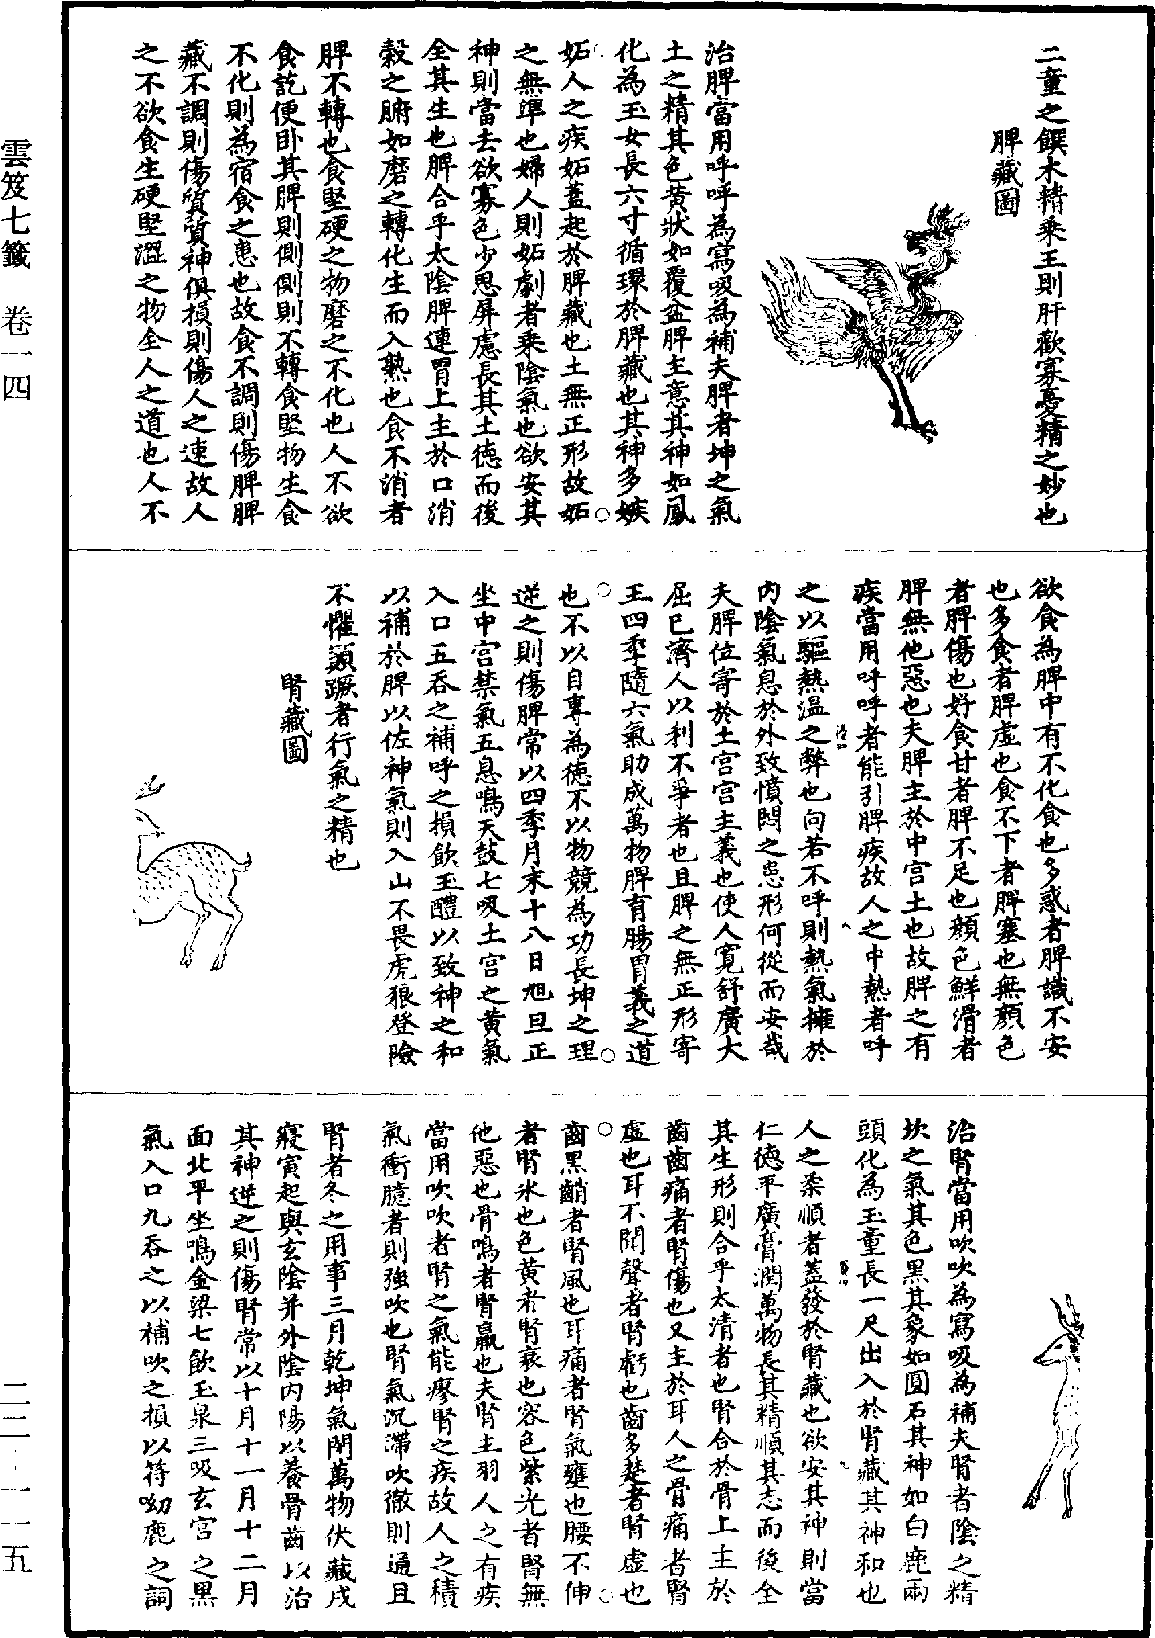 二童之饌木精乘王則肝歡寡憂精之妙也
脾藏圖
治脾當用呼呼為寫吸為補夫脾者坤之氣
土之精其色黄狀如覆盆脾主意其神如鳳
化為玉女長六寸循環於脾藏也其神多嫉
妬人之疾妬蓋起於脾藏也土無正形故妬
之無準也婦人則妬劇者乘陰氣也欲安其
神則當去欲寡色少思屏慮長其土德而後
全其生也脾合乎太陰脾連胃上主於口消
穀之腑如磨之轉化生而入熟也食不消者
脾不轉也食堅硬之物磨之不化也人不欲
食訖便卧其脾則側側則不轉食堅物生食
不化則為宿食之患也故食不調則傷脾脾
藏不調則傷質質神俱損則傷人之速故人
之不欲食生硬堅澀之物全人之道也人不
欲食為脾中有不化食也多惑者脾識不安
也多食者脾虛也食不下者脾塞也無顏色
者脾傷也好食甘者脾不足也顏色鮮滑者
脾無他惡也夫脾主於中宫土也故脾之有
疾當用呼呼者能引脾疾故人之中熱者呼
之以驅熱温之弊也向若不呼則熱氣擁於
内陰氣息於外致憤悶之患形何從而安哉
夫脾位寄於土宫宫主義也使人寛舒廣大
屈已濟人以利不爭者也且脾之無正形寄
王四季隨六氣助成萬物脾育腸胃義之道
也不以自專為德不以物競為功長坤之理
逆之則傷脾常以四季月末十八日旭旦正
坐中宫禁氣五息鳴天鼓七吸土宫之黄氣
入口五吞之補呼之損飲玉醴以致神之和
以補於脾以佐神氣則入山不畏虎狼登險
不懼顛蹶者行氣之精也
腎藏圖
治腎當用吹吹為寫吸為補夫腎者陰之精
坎之氣其色黑其象如圓石其神如白鹿兩
頭化為玉童長一尺出入於腎藏其神和也
人之柔順者蓋發於腎藏也欲安其神則當
仁德平廣膏潤萬物長其精順其志而後全
其生形則合乎太清者也腎合於骨上主於
齒齒痛者腎傷也又主於耳人之骨痛者腎
虛也耳不聞聲者腎虧也齒多楚者腎虛也
齒黑齰者腎風也耳痛者腎氣壅也腰不伸
者腎氷也色黄者腎衰也容色紫光者腎無
他惡也骨鳴者腎羸也夫腎主羽人之有疾
當用吹吹者腎之氣能療腎之疾故人之積
氣衝臆者則強吹也腎氣沉滯吹徹則通且
腎者冬之用事三月乾坤氣閉萬物伏藏戌
寢寅起與玄陰并外陰内陽以養骨齒以治
其神逆之則傷腎常以十月十一月十二月
面北平坐鳴金梁七飲玉泉三吸玄宫之黑
氣入口九吞之以補吹之損以符呦鹿之詞
雲笈七籤 卷一四
二二-一一五